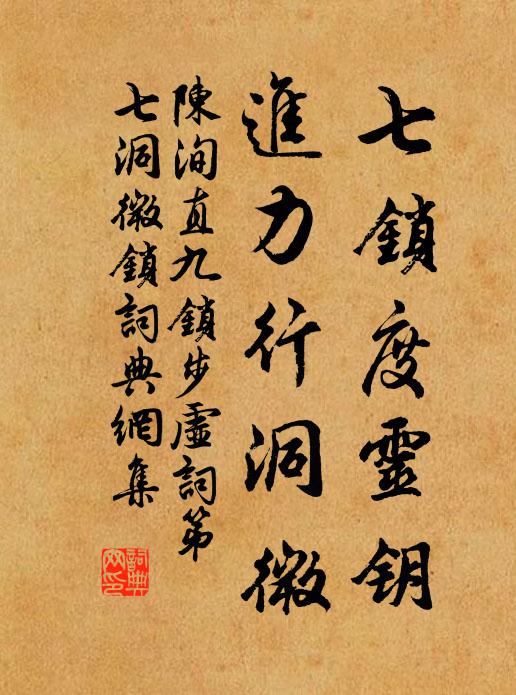 七鎖度靈鑰
進力行洞微
陳洵直九鎖步虛詞第
七洞微鎖詞典網集
詞典網印